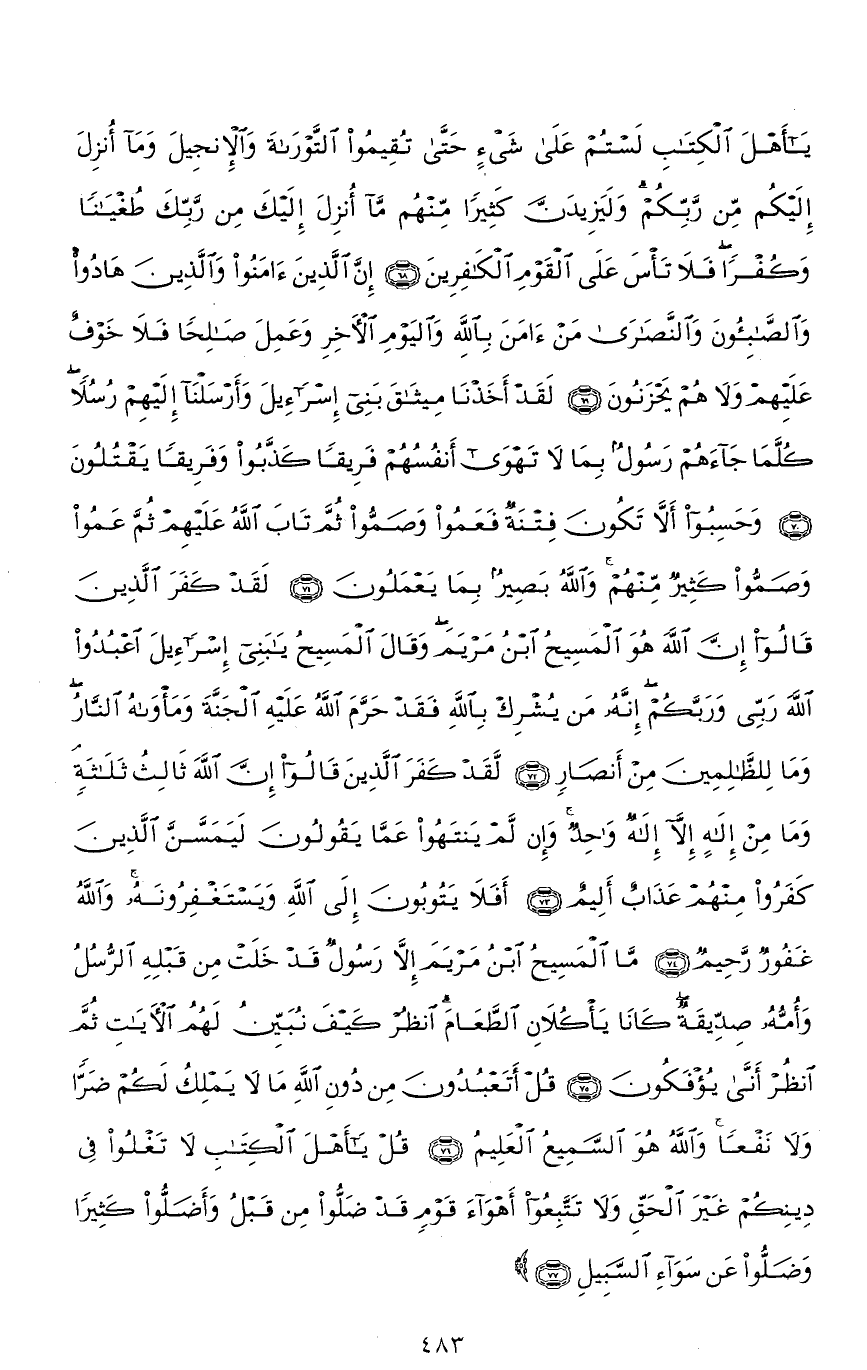 يَـٰٓأَهْلَ ٱلْكِتَـٰبِ لَسْتُمْ عَلَىٰ شَىْءٍ حَتَّىٰ تُقِيمُوا۟ ٱلتَّوْرَىٰةَ وَٱلْإِنجِيلَ وَمَآ أُنزِلَ
إِلَيْكُم مِّن رَّبِّكُمْ ۗ وَلَيَزِيدَنَّ كَثِيرًا مِّنْهُم مَّآ أُنزِلَ إِلَيْكَ مِن رَّبِّكَ طُغْيَـٰنًا
وَكُفْرًا ۖ فَلَا تَأْسَ عَلَى ٱلْقَوْمِ ٱلْكَـٰفِرِينَ ٦٨ إِنَّ ٱلَّذِينَ ءَامَنُوا۟ وَٱلَّذِينَ هَادُوا۟
وَٱلصَّـٰبِـُٔونَ وَٱلنَّصَـٰرَىٰ مَنْ ءَامَنَ بِٱللَّهِ وَٱلْيَوْمِ ٱلْـَٔاخِرِ وَعَمِلَ صَـٰلِحًا فَلَا خَوْفٌ
عَلَيْهِمْ وَلَا هُمْ يَحْزَنُونَ ٦٩ لَقَدْ أَخَذْنَا مِيثَـٰقَ بَنِىٓ إِسْرَٰٓءِيلَ وَأَرْسَلْنَآ إِلَيْهِمْ رُسُلًا ۖ
كُلَّمَا جَآءَهُمْ رَسُولٌۢ بِمَا لَا تَهْوَىٰٓ أَنفُسُهُمْ فَرِيقًا كَذَّبُوا۟ وَفَرِيقًا يَقْتُلُونَ
٧٠ وَحَسِبُوٓا۟ أَلَّا تَكُونَ فِتْنَةٌ فَعَمُوا۟ وَصَمُّوا۟ ثُمَّ تَابَ ٱللَّهُ عَلَيْهِمْ ثُمَّ عَمُوا۟
وَصَمُّوا۟ كَثِيرٌ مِّنْهُمْ ۚ وَٱللَّهُ بَصِيرٌۢ بِمَا يَعْمَلُونَ ٧١ لَقَدْ كَفَرَ ٱلَّذِينَ
قَالُوٓا۟ إِنَّ ٱللَّهَ هُوَ ٱلْمَسِيحُ ٱبْنُ مَرْيَمَ ۖ وَقَالَ ٱلْمَسِيحُ يَـٰبَنِىٓ إِسْرَٰٓءِيلَ ٱعْبُدُوا۟
ٱللَّهَ رَبِّى وَرَبَّكُمْ ۖ إِنَّهُۥ مَن يُشْرِكْ بِٱللَّهِ فَقَدْ حَرَّمَ ٱللَّهُ عَلَيْهِ ٱلْجَنَّةَ وَمَأْوَىٰهُ ٱلنَّارُ ۖ
وَمَا لِلظَّـٰلِمِينَ مِنْ أَنصَارٍ ٧٢ لَّقَدْ كَفَرَ ٱلَّذِينَ قَالُوٓا۟ إِنَّ ٱللَّهَ ثَالِثُ ثَلَـٰثَةٍ ۘ
وَمَا مِنْ إِلَـٰهٍ إِلَّآ إِلَـٰهٌ وَٰحِدٌ ۚ وَإِن لَّمْ يَنتَهُوا۟ عَمَّا يَقُولُونَ لَيَمَسَّنَّ ٱلَّذِينَ
كَفَرُوا۟ مِنْهُمْ عَذَابٌ أَلِيمٌ ٧٣ أَفَلَا يَتُوبُونَ إِلَى ٱللَّهِ وَيَسْتَغْفِرُونَهُۥ ۚ وَٱللَّهُ
غَفُورٌ رَّحِيمٌ ٧٤ مَّا ٱلْمَسِيحُ ٱبْنُ مَرْيَمَ إِلَّا رَسُولٌ قَدْ خَلَتْ مِن قَبْلِهِ ٱلرُّسُلُ
وَأُمُّهُۥ صِدِّيقَةٌ ۖ كَانَا يَأْكُلَانِ ٱلطَّعَامَ ۗ ٱنظُرْ كَيْفَ نُبَيِّنُ لَهُمُ ٱلْـَٔايَـٰتِ ثُمَّ
ٱنظُرْ أَنَّىٰ يُؤْفَكُونَ ٧٥ قُلْ أَتَعْبُدُونَ مِن دُونِ ٱللَّهِ مَا لَا يَمْلِكُ لَكُمْ ضَرًّا
وَلَا نَفْعًا ۚ وَٱللَّهُ هُوَ ٱلسَّمِيعُ ٱلْعَلِيمُ ٧٦ قُلْ يَـٰٓأَهْلَ ٱلْكِتَـٰبِ لَا تَغْلُوا۟ فِى
دِينِكُمْ غَيْرَ ٱلْحَقِّ وَلَا تَتَّبِعُوٓا۟ أَهْوَآءَ قَوْمٍ قَدْ ضَلُّوا۟ مِن قَبْلُ وَأَضَلُّوا۟ كَثِيرًا
وَضَلُّوا۟ عَن سَوَآءِ ٱلسَّبِيلِ ٧٧ ﴾
٤٨٣